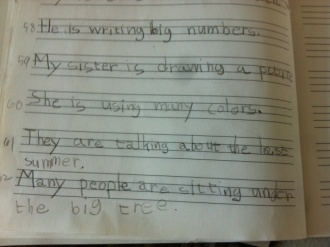 58 He is writing big numbers.
59 My sister is drawing a
60 She is using many colors.
61 They are talking about the
summer.
Many people are sitting under
the big tree.